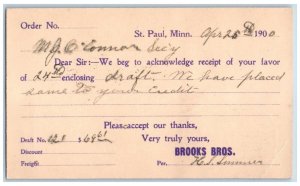 Order No.
St. Paul, Minn. Apr 25th 1900
M. J. O'Connor Sec'y
Dear Sir:—We beg to acknowledge receipt of your favor
of 24th enclosing draft. We have placed
same to your credit
Please accept our thanks,
Draft No. 121 $69 61 Very truly yours,
Discount BROOKS BROS.
Freight Per